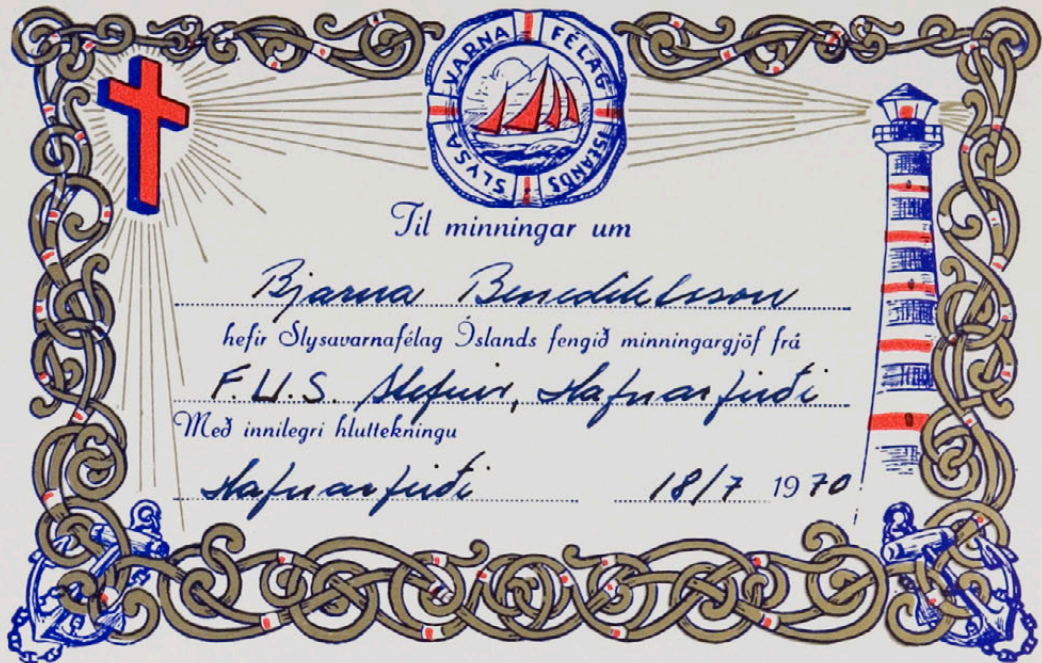 SLYSA VARNA FÉLAG ÍSLANDS
Til minningar um
Bjarna Benediktsson
hefir Slysavarnafélag Íslands fengið minningargjöf frá
F.U.S. Stefnir, Hafnarfirði
Með innilegri hluttekningu
Hafnarfirði 18/7 1970